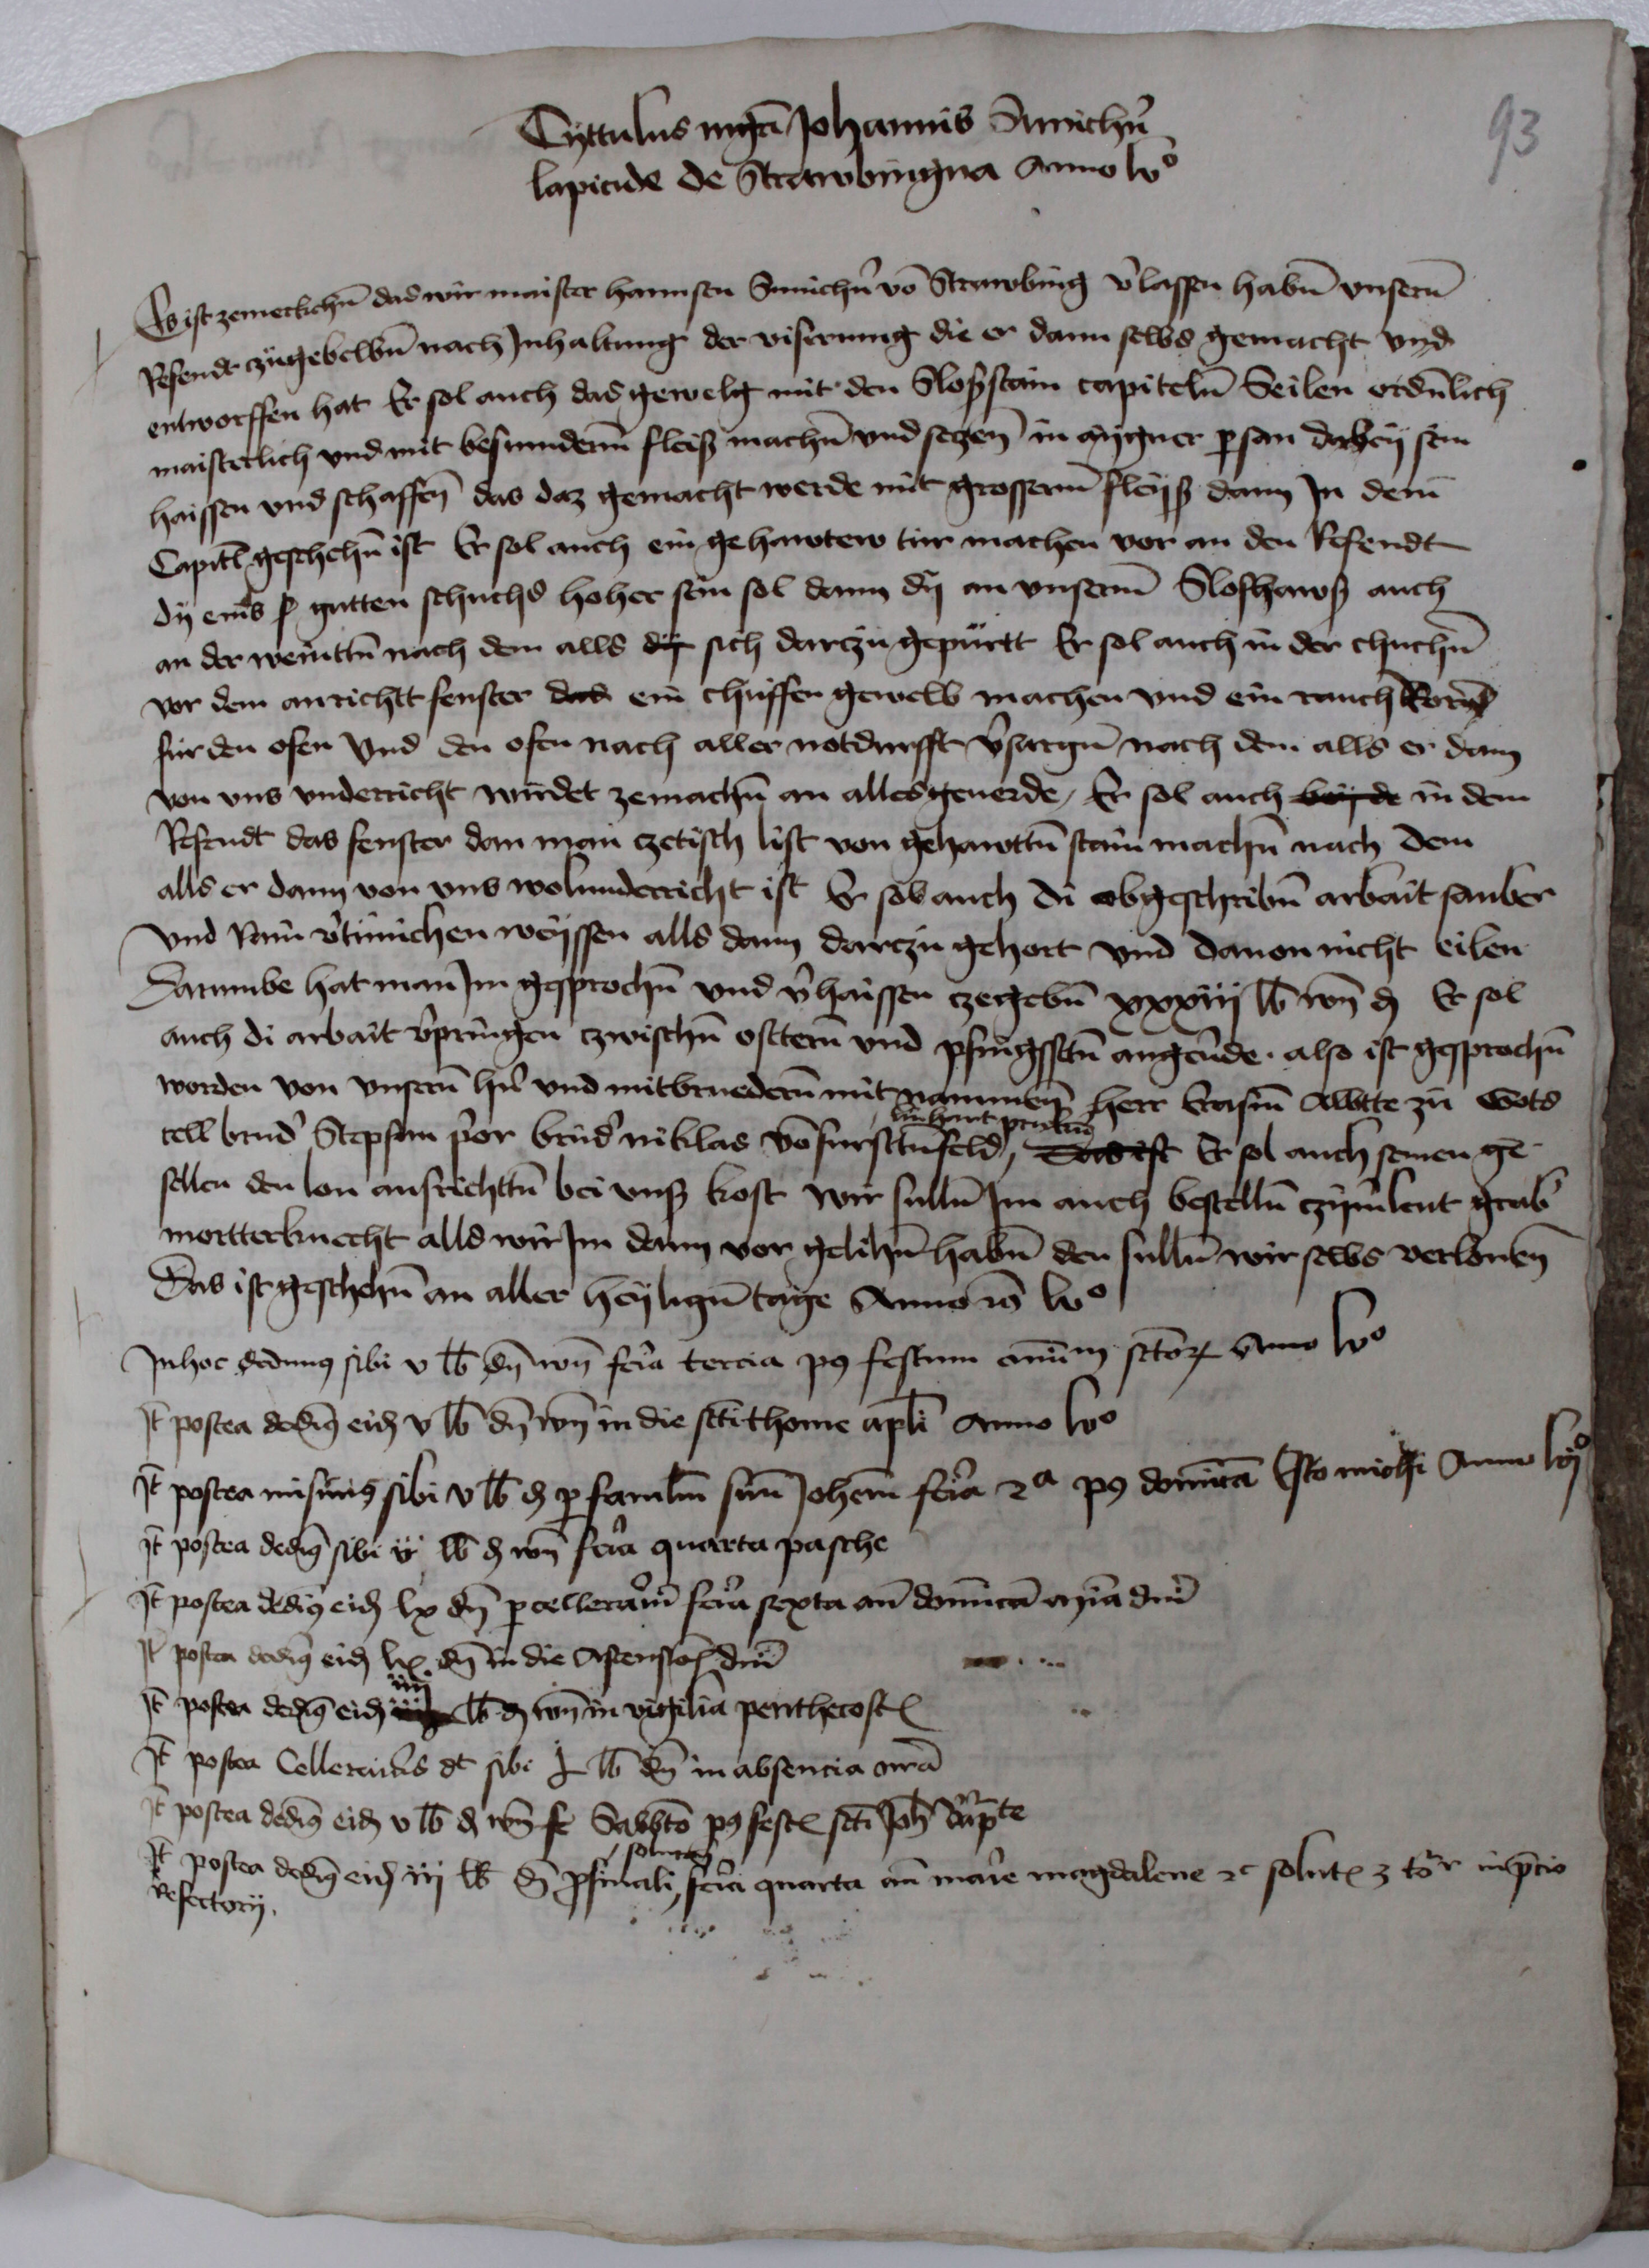 93
Tyttulus mgri Johannis Smichn̄
lapicide de Strawbingna Anno lvº
Es ist zemerkchn̄ das wir maister hannsen Smichn̄ vō Strawbing v̄lassen habn̄ vnsern̄
Refendt czugebelbn̄ nach Inhaltung der viserung die er dann selbs gemacht vnd
entworffen hat Er sol auch das gewelb mit den Slosstain capiteln̄ Seilen ordn̄lich
maisterlich vnd mit besunderm̄ fleiß machn̄ vnd seczen̄ in aygner person dabey sein
haissen vnd schaffen̄ das daz gemacht werde mit grosserm̄ fleyß dann In dem̄
Capitl geschehn̄ ist Er sol auch ein gehawtew tür machen vor an den Refendt
dy eins gutten schuchs hoher sein sol dann dy an vnserm̄ Slofhawß auch
an der weintn̄ nach dem alls dy sich darczu gepürtt Er sol auch in der chuchn̄
vor dem anrichtt fenster das ein chuffen gewelb machen vnd ein rauch Rorn̄
für den ofen Vnd den ofen nach aller notdurfft v̄sorgn̄ nach dem alls er dann
von vns vnderricht wirdet zemachn̄ an alles geuerde, Er sol auch beyde in dem
Refendt das fenster dan man czetisch list von gehawttn̄ stain machn̄ nach dem
alls er dann von vns wol vnderricht ist Er sol auch di obgeschribn̄ arbait sauber
Vnd Rain v̄tünichen weyssen alls dann darczu gehort vnd dauon nicht eilen
Darumbe hat man Im gesprochn̄ vnd v̄haissen czegebn̄ xxxiiij lb wn̄ d Er sol
auch di arbait v̄pringen czwischn̄ ostern̄ vnd pfingsstn̄ angeu̅de. also ist gesprochn̄
worden von vnsern̄ hn̄ vnd mitbruedern̄ mit nammen̄ herr Erasm̄ Abtte zu Gots
linhart
cell brud' Stephan p'or brud' niklas vō furstnfeld, Das ist Er sol auch seinen ge
sellen den lon ausrichttn̄ bei vnß kost wir sulln̄ Im auch bestelln̄ czym̄leut grab'
mortterknecht alls wir Im dann vor gelihn̄ habn̄ den sulln̄ wir selbs verlonen̄
Das ist geschehn̄ an aller heyligen̄ tage Anno rō lvº
In hoc dedimus sibi v lb dn̄ wn̄ feria tercia p9 festum oīum sctōr Anno lvº
It postea dedim9 eidē v lb dn̄ wn̄ in die scti thome apli Anno lvº
It postea misimus sibi v lb d per famulm̄ suū Johem̄ feria 2a p9 dominicā Esto michi Anno lvjº
It postea dedim9 sibi ij lb d wn̄ feria quarta pasche
It postea dedim9 eidē lx dn̄ per cellerariū feria sexta an̄ dominicā mīa dni
It postea dedim9 eidē lx dn̄ in die Ascensionis dni
iiij
It postea dedim9 eidē lb d wn̄ in vigilia penthecostes
It postea Cellerarius dt sibi lb dn̄ in absencia nrā
It postea dedim9 eidē v lb d wn̄ Sabbto p9 festū scti Joh bapte
It postea dedim9 eidē iij lb dn̄ pro finali solucione feria quarta an̄ marie magdalene
Refectorij.